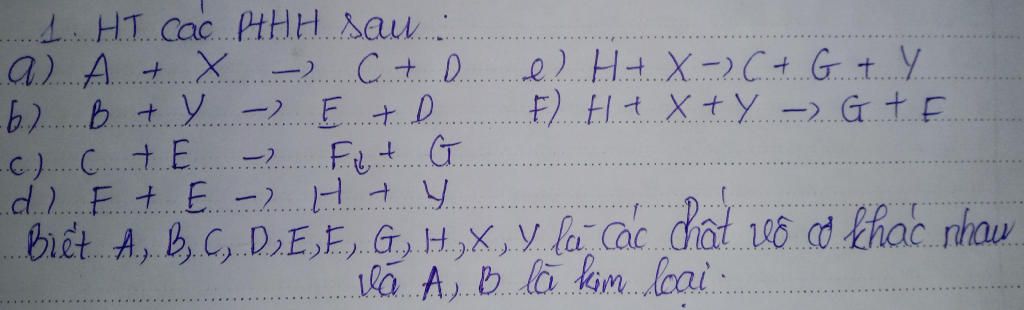 1. HT các PTHH sau :
a) A + X → C + D e) H + X → C + G + Y
b) B + Y → E + D F) H + X + Y → G + E
c) C + E → F↓ + G
d) F + E → H + Y
Biết A, B, C, D, E, F, G, H, X, Y là các chất vô cơ khác nhau
và A, B là kim loại.